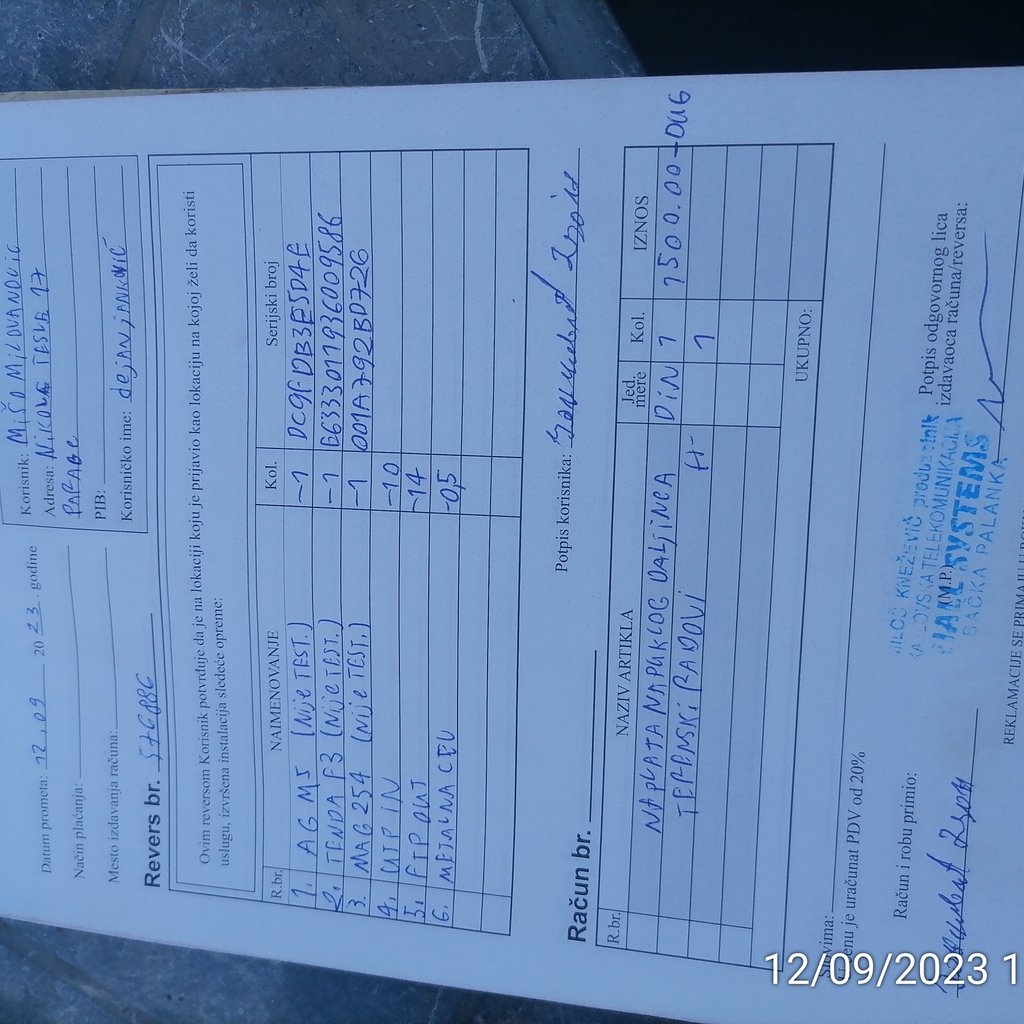 Datum prometa: 12.09 2023. godine
Način plaćanja:
Mesto izdavanja računa:
Revers br. 576886
Korisnik: MIŠO MILOVANOVIĆ
Adresa: NIKOLA TESLE 17
PARAGE
PIB:
Korisničko ime: dejanjanković
Ovim reversom Korisnik potvrđuje da je na lokaciji koju je prijavio kao lokaciju na kojoj želi da koristi
uslugu, izvršena instalacija sledeće opreme:
R.br. NAIMENOVANJE Kol. Serijski broj
1. AG M5 (NIJE TEST.) -1 DC9FDB3E5D4E
2. TENDA F3 (NIJE TEST.) -1 E6333011936009586
3. MAG 254 (NIJE TEST.) -1 001A792BD726
4. UTP IN -10
5. FTP OUT -14
6. METALNA CEV -0,5
Potpis korisnika:
Račun br.
R.br. NAZIV ARTIKLA Jed. mere Kol. IZNOS
NAPLATA NAPUKLOG DALJINCA DIN 1 1500.00-DUG
TERENSKI RADOVI H- 1
UKUPNO:
enu je uračunat PDV od 20%
Račun i robu primio:
(M.P.)
MILOŠ KNEŽEVIĆ preduzetnik
TELEKOMUNIKACIJA
SYSTEMS
BAČKA PALANKA
Potpis odgovornog lica
izdavaoca računa/reversa:
REKLAMACIJE SE PRIMAJU U ROKU
12/09/2023 1